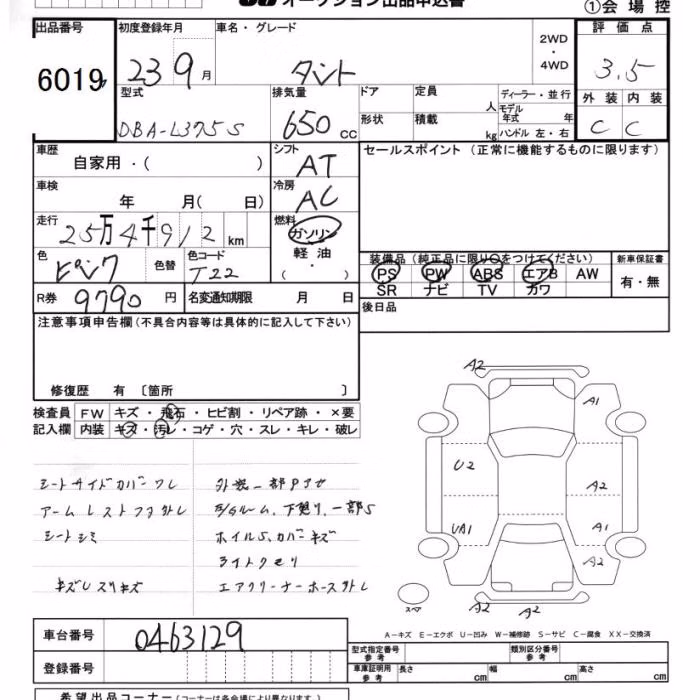 オークション出品申込書
①会場控
出品番号 初度登録年月 車名・グレード 評価点
6019 23 9月 タント 2WD・4WD 3.5
型式 排気量 ドア 定員 人 ディーラー・並行 外装 内装
DBA-L375S 650cc モデル年式 年 C C
形状 積載 kg ハンドル 左・右
車歴 シフト セールスポイント（正常に機能するものに限ります）
自家用・（ ） AT
車検 冷房
年 月（ 日） AC
走行 燃料
25万4千912km ガソリン
軽油
・
（ ）
色 色替 色コード 装備品（純正品に限り○をつけてください） 新車保証書
ピンク T22 PS PW ABS エアB AW 有・無
SR ナビ TV カワ
R券 9790円 名変通知期限 月 日 後日品
注意事項申告欄（不具合内容等は具体的に記入して下さい）
修復歴 有 〔箇所 〕
検査員 FW キズ・飛石・ヒビ割・リペア跡・×要
記入欄 内装 キズ・汚レ・コゲ・穴・スレ・キレ・破レ
A2
A1
U2
A2
UA1 A1
A2
A2 A2
シートサイドカバーワレ
アームレストフタトレ
シートシミ
ホイルS、カバーキズ
ライトクモリ
エアクリーナーホース外レ
スペア
A－キズ E－エクボ U－凹み W－補修跡 S－サビ C－腐食 XX－交換済
車台番号 0463129 型式指定番号 参考 類別区分番号 参考
登録番号 車庫証明用 参考 長さ cm 幅 cm 高さ cm
希望出品コーナー（コーナーは各会場により異なります。）